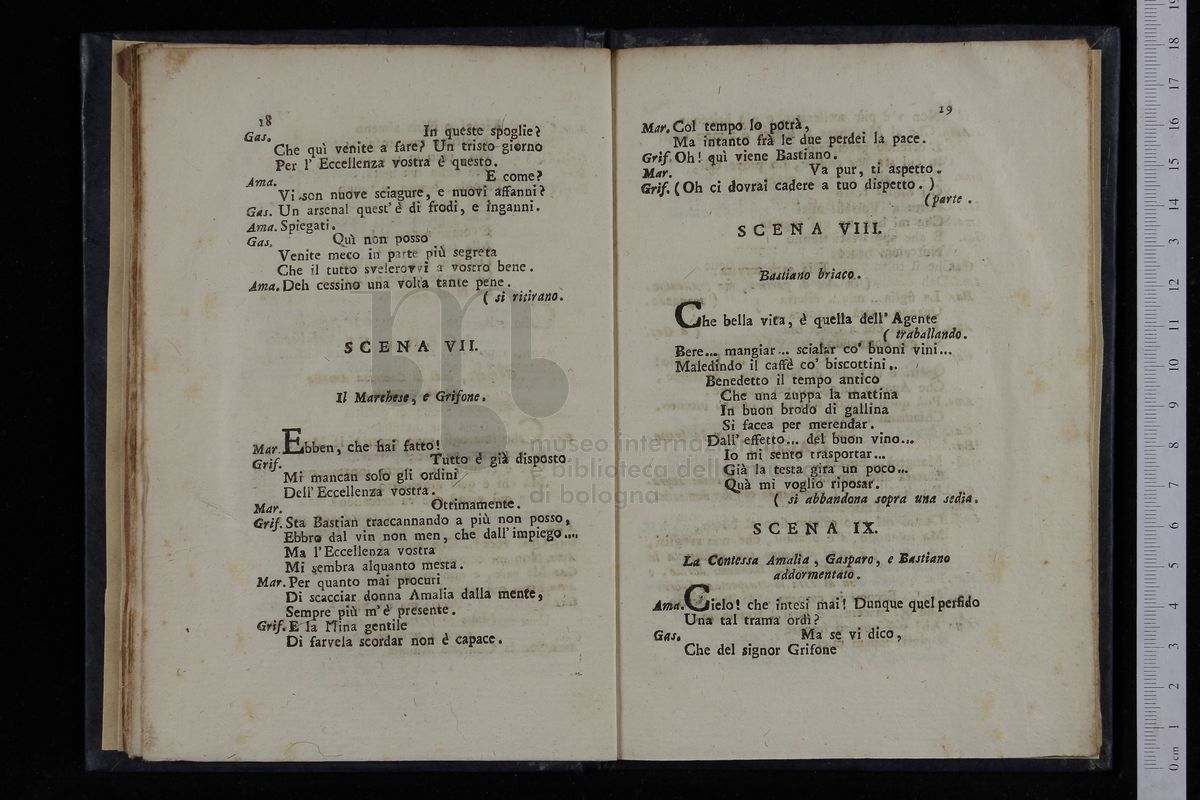 18
Gas. In queste spoglie?
Che quì venite a fare? Un tristo giorno
Per l' Eccellenza vostra è questo.
Ama. E come?
Vi son nuove sciagure, e nuovi affanni?
Gas. Un arsenal quest' è di frodi, e inganni.
Ama. Spiegati.
Gas. Quì non posso
Venite meco in parte più segreta
Che il tutto svelerovvi a vostro bene.
Ama. Deh cessino una volta tante pene.
( si ritirano.
SCENA VII.
Il Marchese, e Grifone.
Mar. Ebben, che hai fatto!
Grif. Tutto è già disposto
Mi mancan solo gli ordini
Dell' Eccellenza vostra.
Mar. Ottimamente.
Grif. Sta Bastian traccannando a più non posso,
Ebbro dal vin non men, che dall' impiego....
Ma l'Eccellenza vostra
Mi sembra alquanto mesta.
Mar. Per quanto mai procuri
Di scacciar donna Amalia dalla mente,
Sempre più m'è presente.
Grif. E la Nina gentile
Di farvela scordar non è capace.
19
Mar. Col tempo lo potrà,
Ma intanto frà le due perdei la pace.
Grif. Oh! quì viene Bastiano.
Mar. Va pur, ti aspetto.
Grif. (Oh ci dovrai cadere a tuo dispetto. )
(parte .
SCENA VIII.
Bastiano briaco.
Che bella vita, è quella dell' Agente
( traballando.
Bere... mangiar... scialar co' buoni vini...
Maledindo il caffè co' biscottini..
Benedetto il tempo antico
Che una zuppa la mattina
In buon brodo di gallina
Si facea per merendar.
Dall' effetto... del buon vino...
Io mi sento trasportar...
Già la testa gira un poco...
Quà mi voglio riposar.
( si abbandona sopra una sedia.
SCENA IX.
La Contessa Amalia, Gasparo, e Bastiano
addormentato.
Ama. Cielo! che intesi mai! Dunque quel perfido
Una tal trama ordì?
Gas. Ma se vi dico,
Che del signor Grifone
museo interna
e biblioteca del
di bologna
0 cm 1 2 3 4 5 6 7 8 9 10 11 12 13 14 15 16 17 18 19